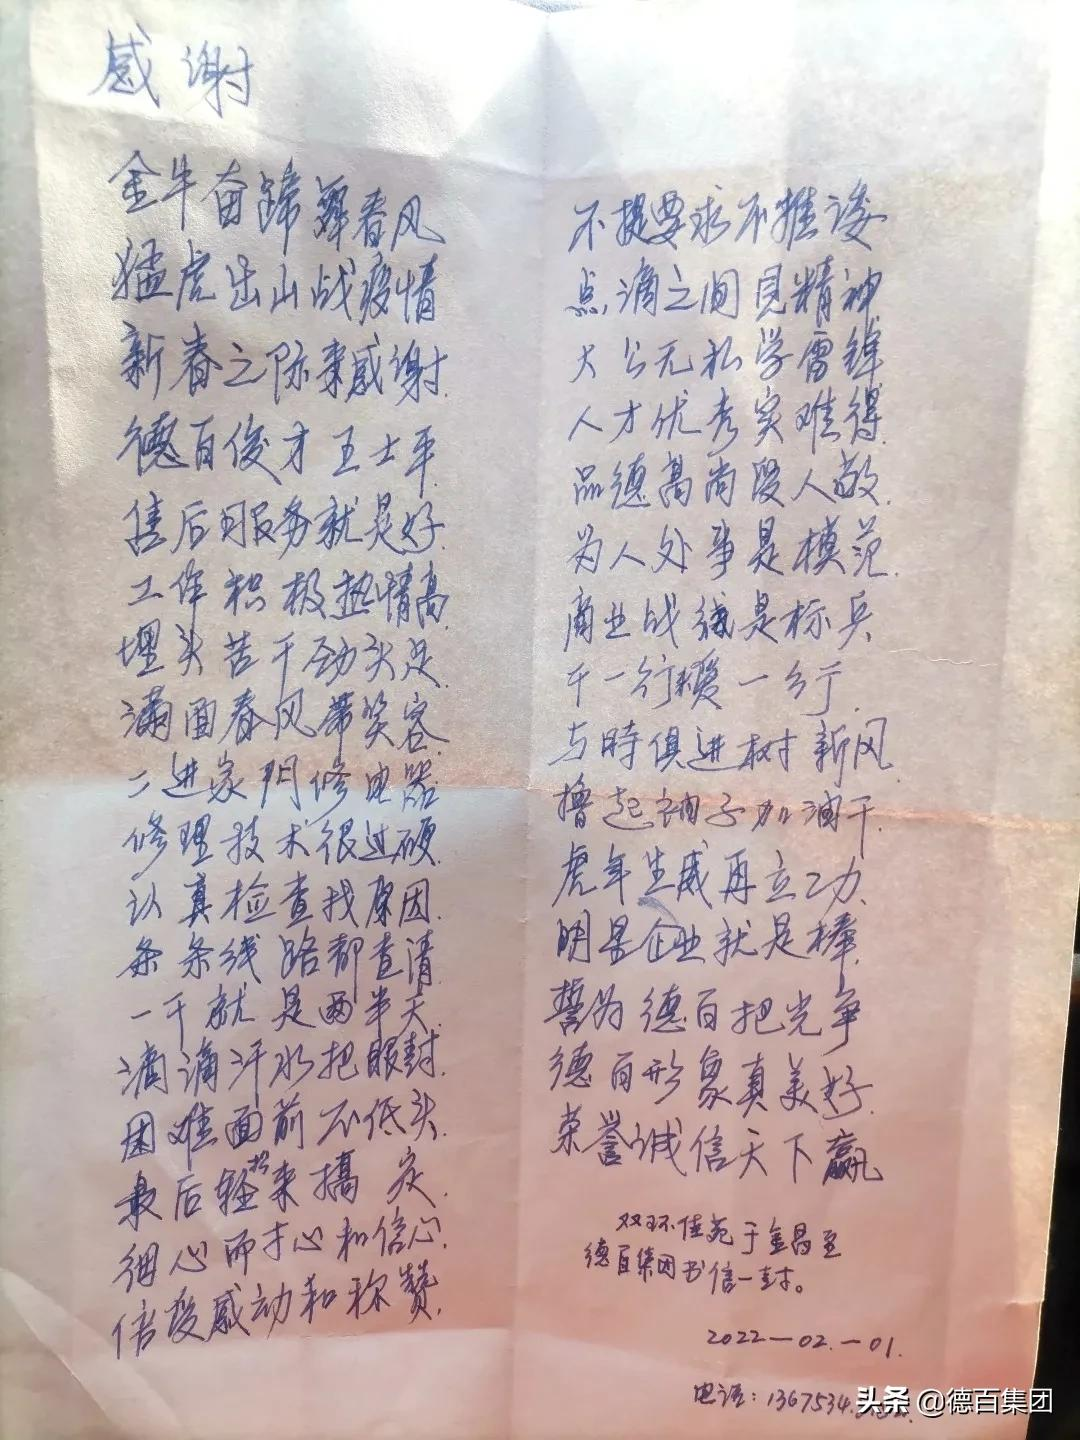 感谢
金牛奋蹄舞春风
猛虎出山战疫情
新春之际来感谢
德百俊才王士平
售后服务就是好
工作积极热情高
埋头苦干劲头足
满面春风带笑容
二进家门修电器
修理技术很过硬
认真检查找原因
条条线路都查清
一干就是两半天
滴滴汗水把眼封
困难面前不低头
最后轻松来搞定
细心耐心和信心
倍受感动和称赞
不提要求不推诿
点滴之间见精神
大公无私学雷锋
人才优秀实难得
品德高尚受人敬
为人处事是模范
商业战线是标兵
干一行爱一行
与時俱进树新风
撸起袖子加油干
虎年生威再立功
明星企业就是棒
誓为德百把光争
德百形象真美好
荣誉诚信天下赢
双环佳苑于金昌至
德百集团书信一封。
2022-02-01.
电话:1367534
头条 @德百集团